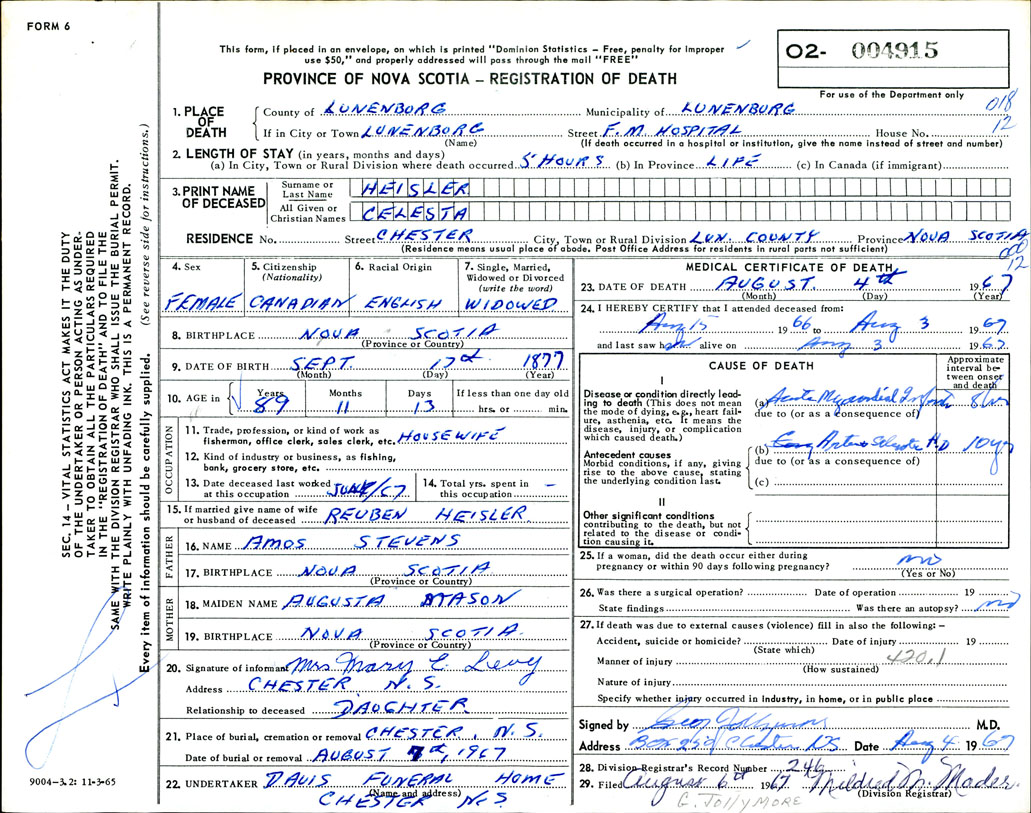 FORM 6
This form, if placed in an envelope, on which is printed "Dominion Statistics – Free, penalty for improper
use $50," and properly addressed will pass through the mail "FREE"
PROVINCE OF NOVA SCOTIA – REGISTRATION OF DEATH
O2- 004915
For use of the Department only
018
12
SEC. 14 – VITAL STATISTICS ACT MAKES IT THE DUTY
OF THE UNDERTAKER OR PERSON ACTING AS UNDER-
TAKER TO OBTAIN ALL THE PARTICULARS REQUIRED
IN THE "REGISTRATION OF DEATH" AND TO FILE THE
SAME WITH THE DIVISION REGISTRAR WHO SHALL ISSUE THE BURIAL PERMIT.
WRITE PLAINLY WITH UNFADING INK. THIS IS A PERMANENT RECORD.
Every item of information should be carefully supplied. (See reverse side for instructions.)
1. PLACE OF DEATH
County of LUNENBURG Municipality of LUNENBURG
If in City or Town LUNENBURG Street F. M. HOSPITAL House No.
(Name) (If death occurred in a hospital or institution, give the name instead of street and number)
2. LENGTH OF STAY (in years, months and days)
(a) In City, Town or Rural Division where death occurred 5 HOURS (b) In Province LIFE (c) In Canada (if immigrant)
3. PRINT NAME OF DECEASED
Surname or Last Name HEISLER
All Given or Christian Names CELESTA
RESIDENCE No. Street CHESTER City, Town or Rural Division LUN. COUNTY Province NOVA SCOTIA
(Residence means usual place of abode. Post Office Address for residents in rural parts not sufficient)
12
4. Sex FEMALE
5. Citizenship (Nationality) CANADIAN
6. Racial Origin ENGLISH
7. Single, Married, Widowed or Divorced (write the word) WIDOWED
8. BIRTHPLACE NOVA SCOTIA
(Province or Country)
9. DATE OF BIRTH SEPT. 17th 1877
(Month) (Day) (Year)
10. AGE in Years 89 Months 11 Days 13 If less than one day old hrs. or min.
OCCUPATION
11. Trade, profession, or kind of work as
fisherman, office clerk, sales clerk, etc. HOUSEWIFE
12. Kind of industry or business, as fishing,
bank, grocery store, etc.
13. Date deceased last worked at this occupation JUNE/67
14. Total yrs. spent in this occupation –
15. If married give name of wife
or husband of deceased REUBEN HEISLER
FATHER
16. NAME AMOS STEVENS
17. BIRTHPLACE NOVA SCOTIA
(Province or Country)
MOTHER
18. MAIDEN NAME AUGUSTA MASON
19. BIRTHPLACE NOVA SCOTIA.
(Province or Country)
20. Signature of informant Mrs Mary E. Levy
Address CHESTER N. S.
Relationship to deceased DAUGHTER
21. Place of burial, cremation or removal CHESTER, N. S.
Date of burial or removal AUGUST 7th, 1967
22. UNDERTAKER DAVIS FUNERAL HOME
(Name and address)
CHESTER N.S
9004–3.2: 11-3-65
MEDICAL CERTIFICATE OF DEATH
23. DATE OF DEATH AUGUST. 4th 1967
(Month) (Day) (Year)
24. I HEREBY CERTIFY that I attended deceased from:
Aug 15 1966 to Aug 3 1967
and last saw her alive on Aug 3 1967
CAUSE OF DEATH
Approximate interval between onset and death
I
Disease or condition directly lead-
ing to death (This does not mean
the mode of dying, e.g., heart fail-
ure, asthenia, etc. It means the
disease, injury, or complication
which caused death.)
(a) Acute Myocardial Infarct 8 hrs
due to (or as a consequence of)
Antecedent causes
Morbid conditions, if any, giving
rise to the above cause, stating
the underlying condition last.
(b) Arterio Sclerotic H D 10 yrs
due to (or as a consequence of)
(c)
II
Other significant conditions
contributing to the death, but not
related to the disease or condi-
tion causing it.
25. If a woman, did the death occur either during
pregnancy or within 90 days following pregnancy? no
(Yes or No)
26. Was there a surgical operation? Date of operation 19
State findings Was there an autopsy? no
27. If death was due to external causes (violence) fill in also the following: –
Accident, suicide or homicide? Date of injury 19
(State which)
Manner of injury 420.1
(How sustained)
Nature of injury
Specify whether injury occurred in industry, in home, or in public place
Signed by M.D.
Address Box Chester NS Date Aug 4 1967
28. Division Registrar's Record Number 246
29. Filed August 6th 1967 Mildred N. Mader.
(Division Registrar)
G. JOLLYMORE